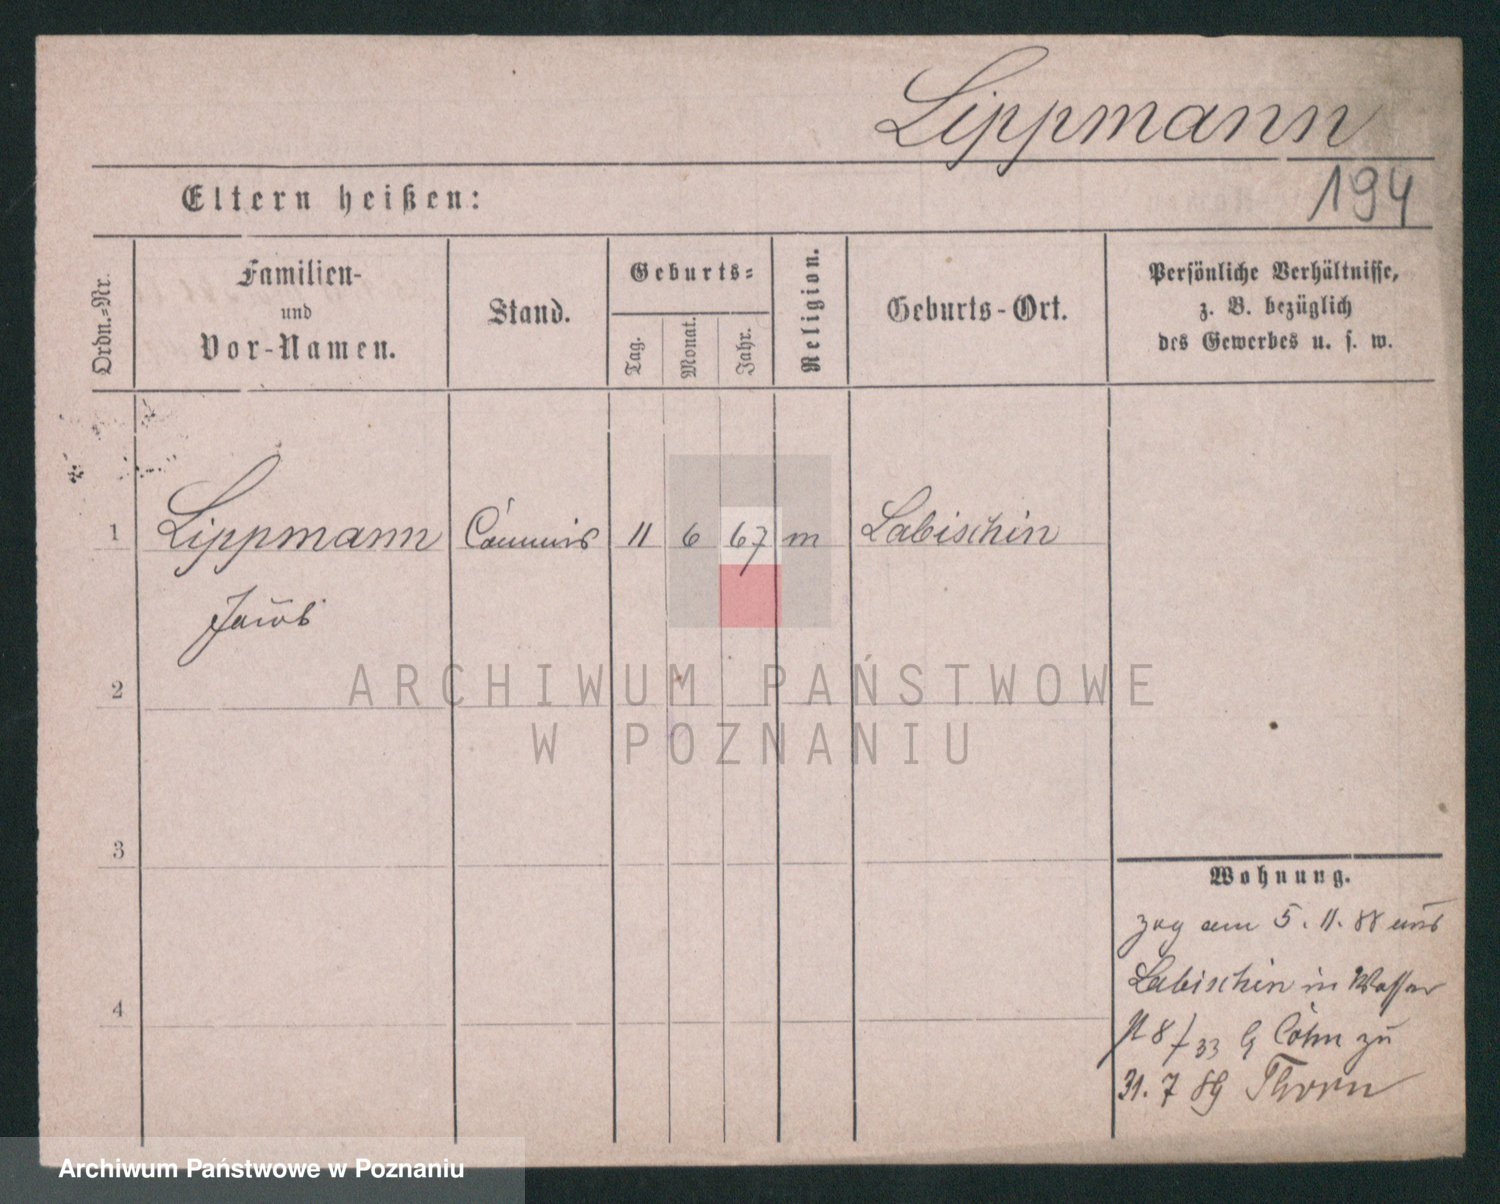 Lippmann
194
Eltern heißen:
Ordn.=Nr.
Familien-
und
Vor-Namen.
Stand.
Geburts=
Tag.
Monat.
Jahr.
Religion.
Geburts-Ort.
Persönliche Verhältnisse,
z. B. bezüglich
des Gewerbes u. s. w.
1
Lippmann
Commis
11
6
67
m
Labischin
Jacob
2
ARCHIWUM PAŃSTWOWE
W POZNANIU
3
4
Wohnung.
zog am 5. 11. 88 aus
Labischin in Wasser
8/33 Cohn zu
31. 7 89 Thorn
Archiwum Państwowe w Poznaniu